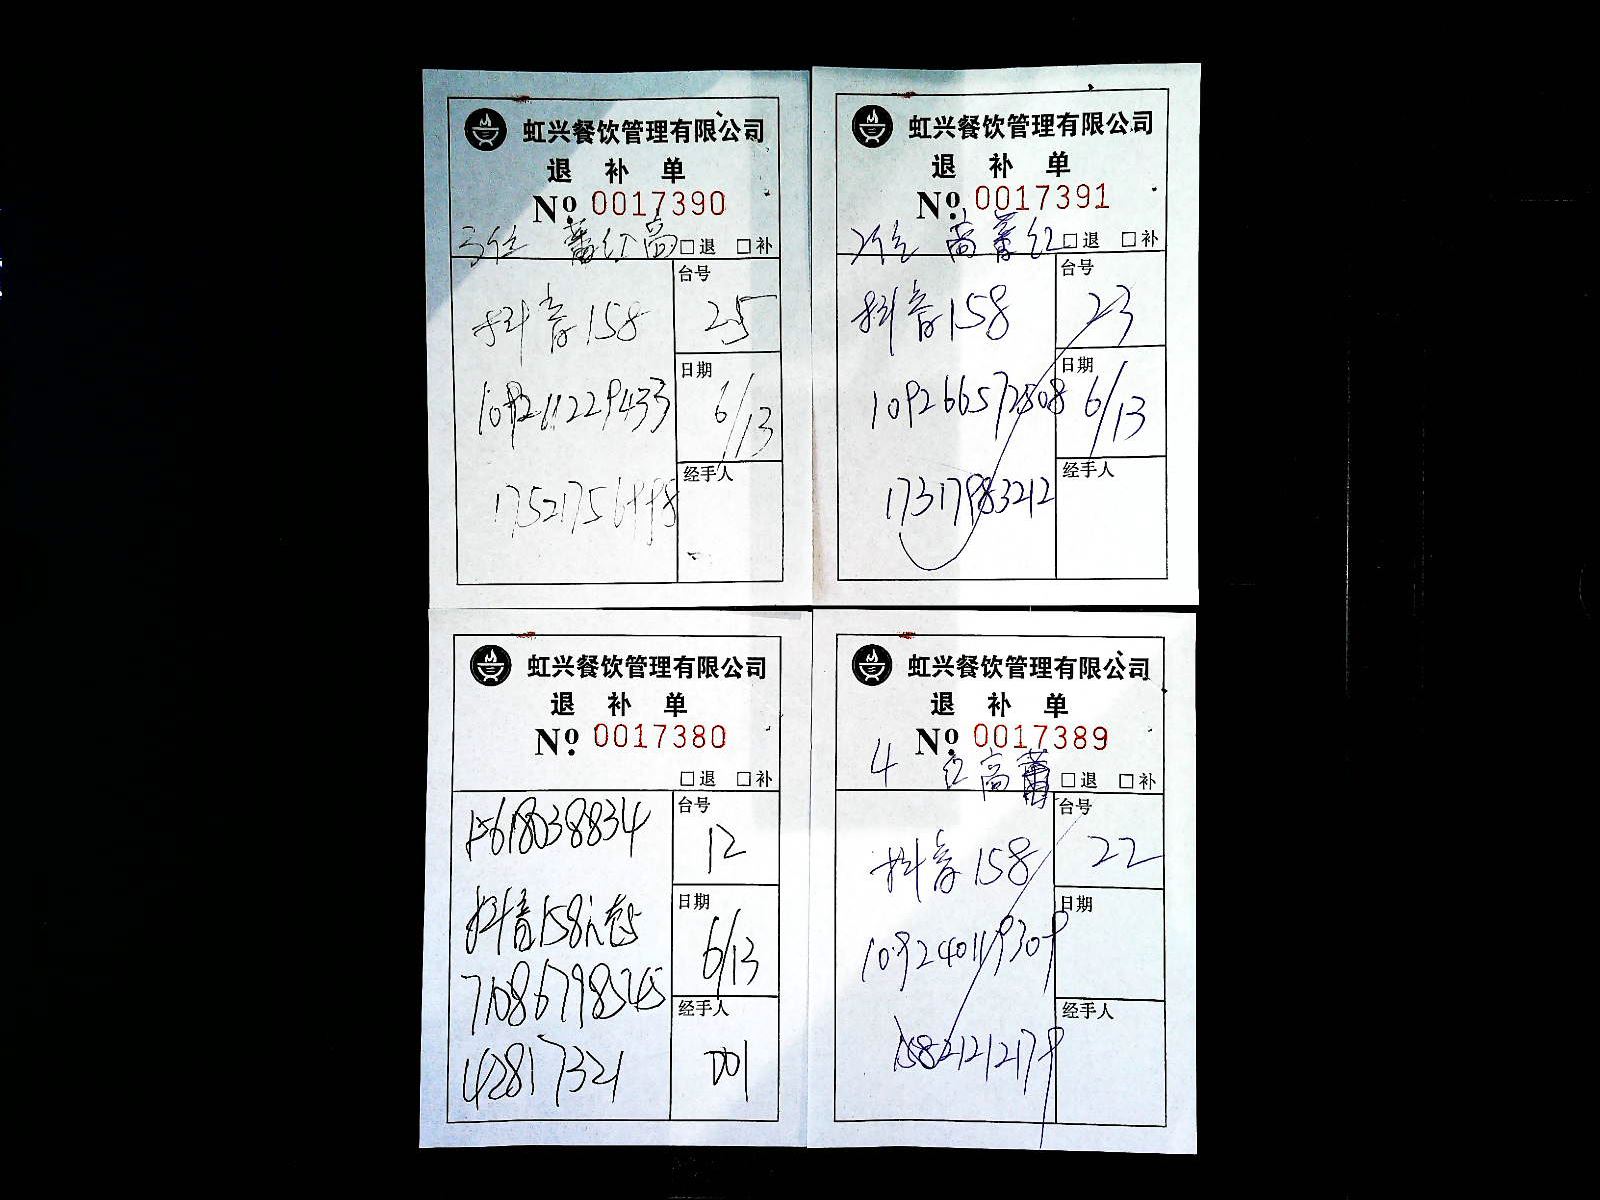 虹兴餐饮管理有限公司
退 补 单
№ 0017390
□退 □补
抖音158
台号
25
日期
6/13
经手人
虹兴餐饮管理有限公司
退 补 单
№ 0017391
2位 高 红 □退 □补
抖音158
台号
23
109266572508
日期
6/13
17317983212
经手人
虹兴餐饮管理有限公司
退 补 单
№ 0017380
□退 □补
15618038834
台号
12
抖音158
日期
6/13
71086798545
42817321
经手人
001
虹兴餐饮管理有限公司
退 补 单
№ 0017389
4 高 □退 □补
抖音158
台号
22
109240119309
日期
15821212179
经手人